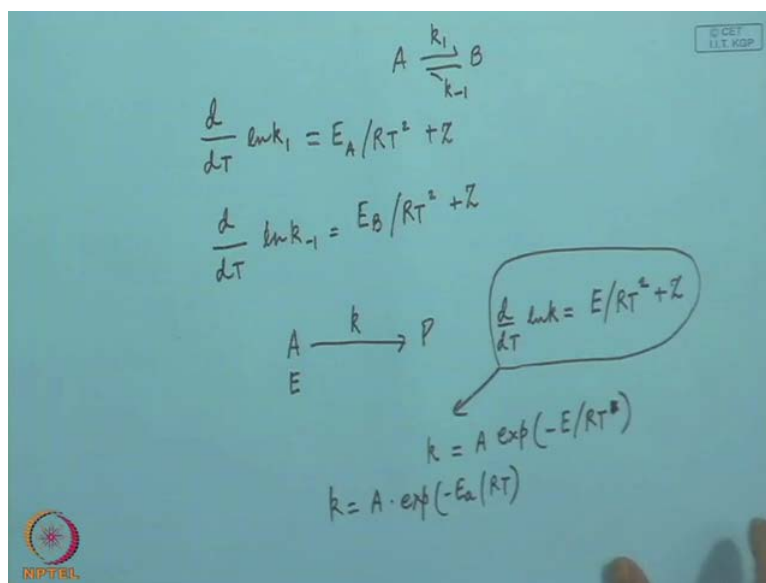 © CET
I.I.T. KGP
A ⇌ B
k₁
k₋₁
d/dT ln k₁ = E_A/RT² + Z
d/dT ln k₋₁ = E_B/RT² + Z
A → P
k
E
d/dT ln k = E/RT² + Z
k = A exp(-E/RT)
k = A · exp(-Eₐ(RT)
NPTEL